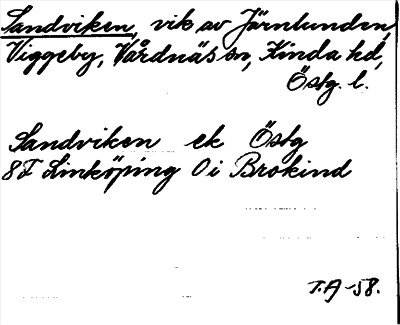 Sandviken, vik av Järnlunden,
Viggeby, Vårdnäs sn, Kinda hd,
Östg. l.
Sandviken ek Östg
8F Linköping Ö i Brokind
T.A -58.